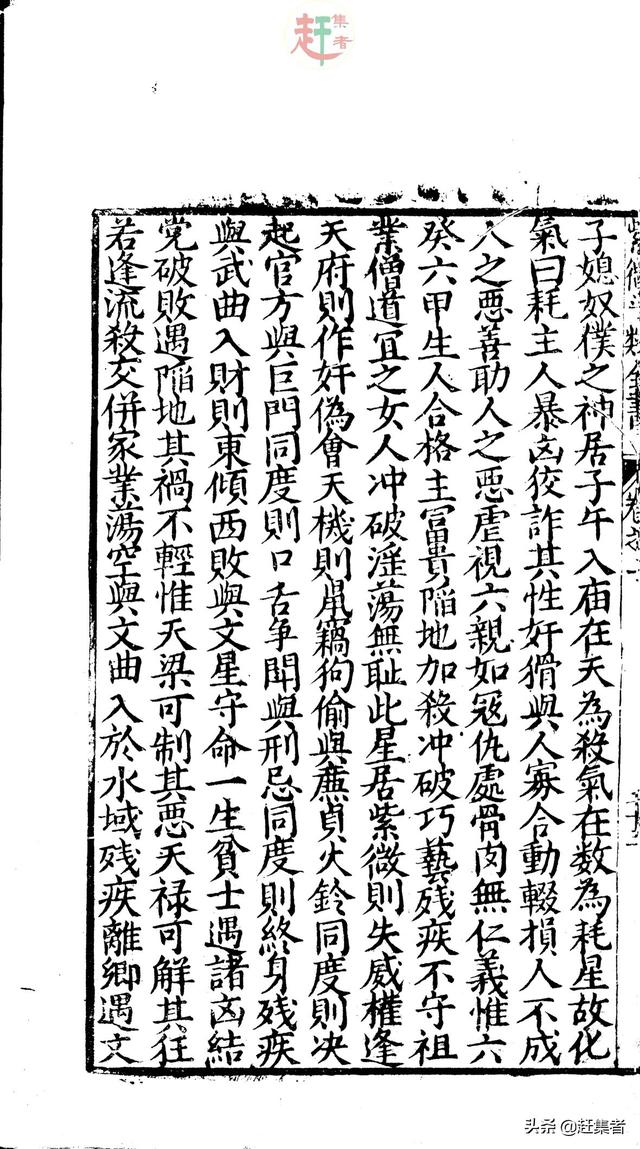 赶集者
子媳奴僕之神居子午入庙在天為殺氣在数為耗星故化
氣曰耗主人暴凶狡詐其性奸猾與人寡合動輟損人不成
人之惡善助人之惡虐視六親如冦仇處骨肉無仁義惟六
癸六甲生人合格主冨貴陷地加殺冲破巧藝残疾不守祖
業僧道宜之女人冲破淫蕩無耻此星居紫微則失威權逢
天府則作奸偽會天機則鼠竊狗偷與亷貞火鈴同度則决
起官方與巨門同度則口舌争鬪與刑忌同度則終身残疾
與武曲入財則東傾西敗與文星守命一生貧士遇諸凶結
党破敗遇陷地其禍不輕惟天梁可制其惡天禄可解其狂
若逢流殺交併家業蕩空與文曲入於水域残疾離鄉遇文
头条 @赶集者